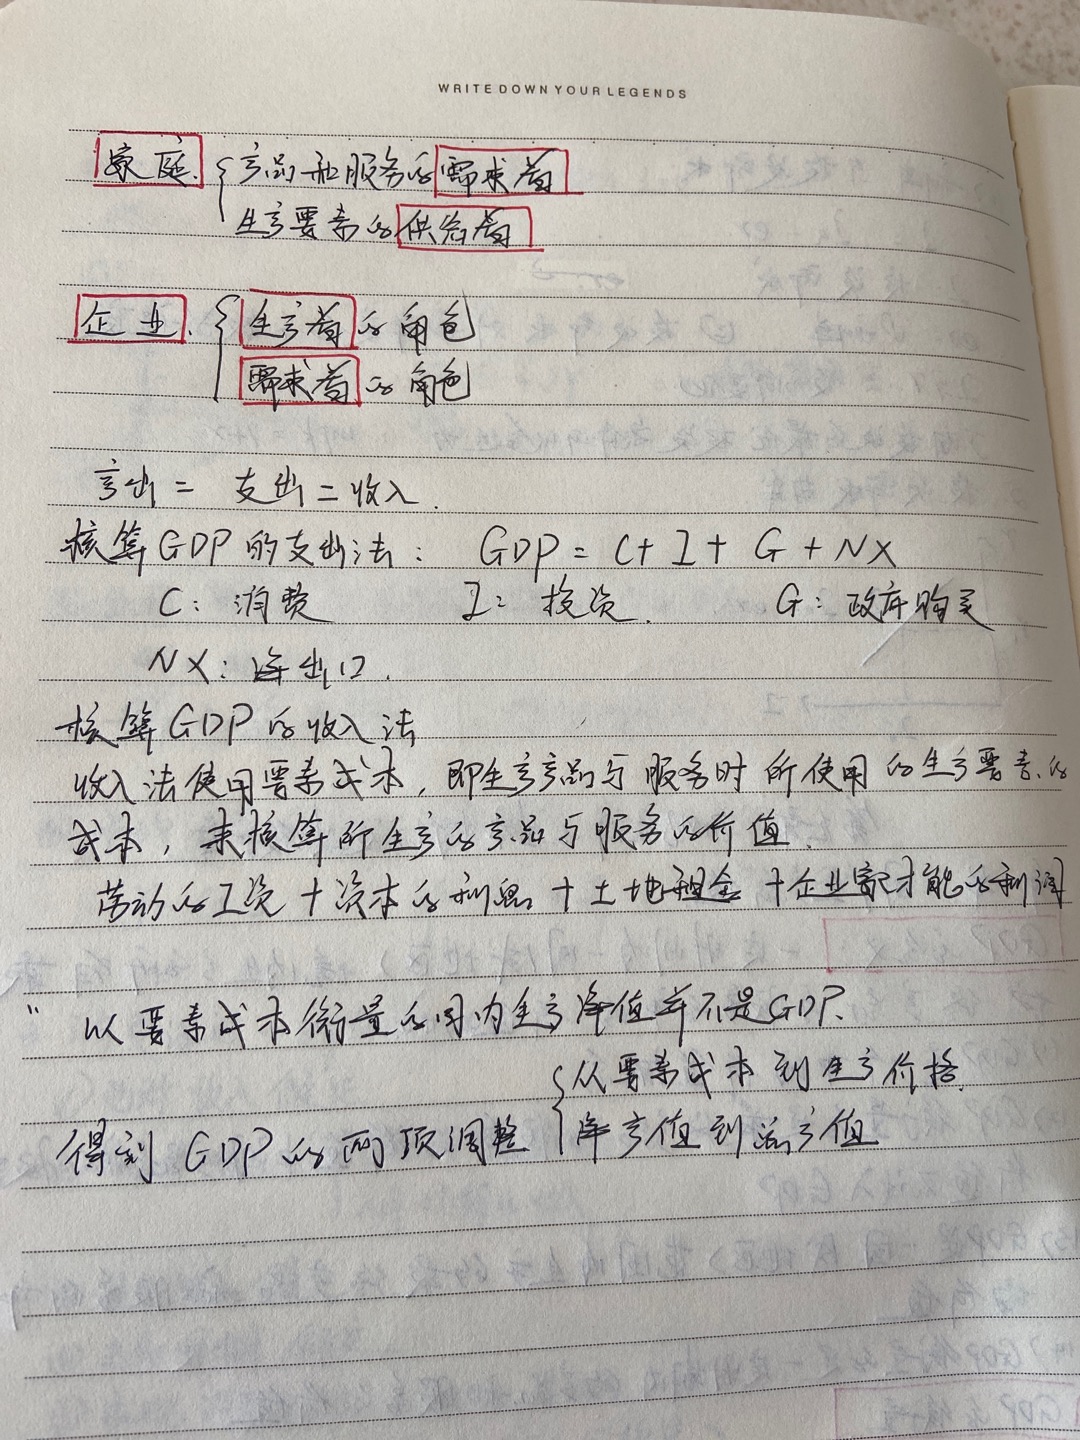 WRITE DOWN YOUR LEGENDS
家庭. { 产品和服务的需求者
生产要素的供给者
企业. { 生产者的角色
需求者的角色
产出 = 支出 = 收入.
核算GDP的支出法: GDP = C + I + G + NX
C: 消费 I: 投资. G: 政府购买
NX: 净出口.
核算GDP的收入法
收入法使用要素成本, 即生产产品与服务时所使用的生产要素的
成本, 来核算所生产的产品与服务的价值.
劳动的工资 + 资本的利息 + 土地租金 + 企业家才能的利润
" 以要素成本衡量的国内生产净值并不是GDP.
得到 GDP的两项调整 { 从要素成本到生产价格.
净产值到总产值